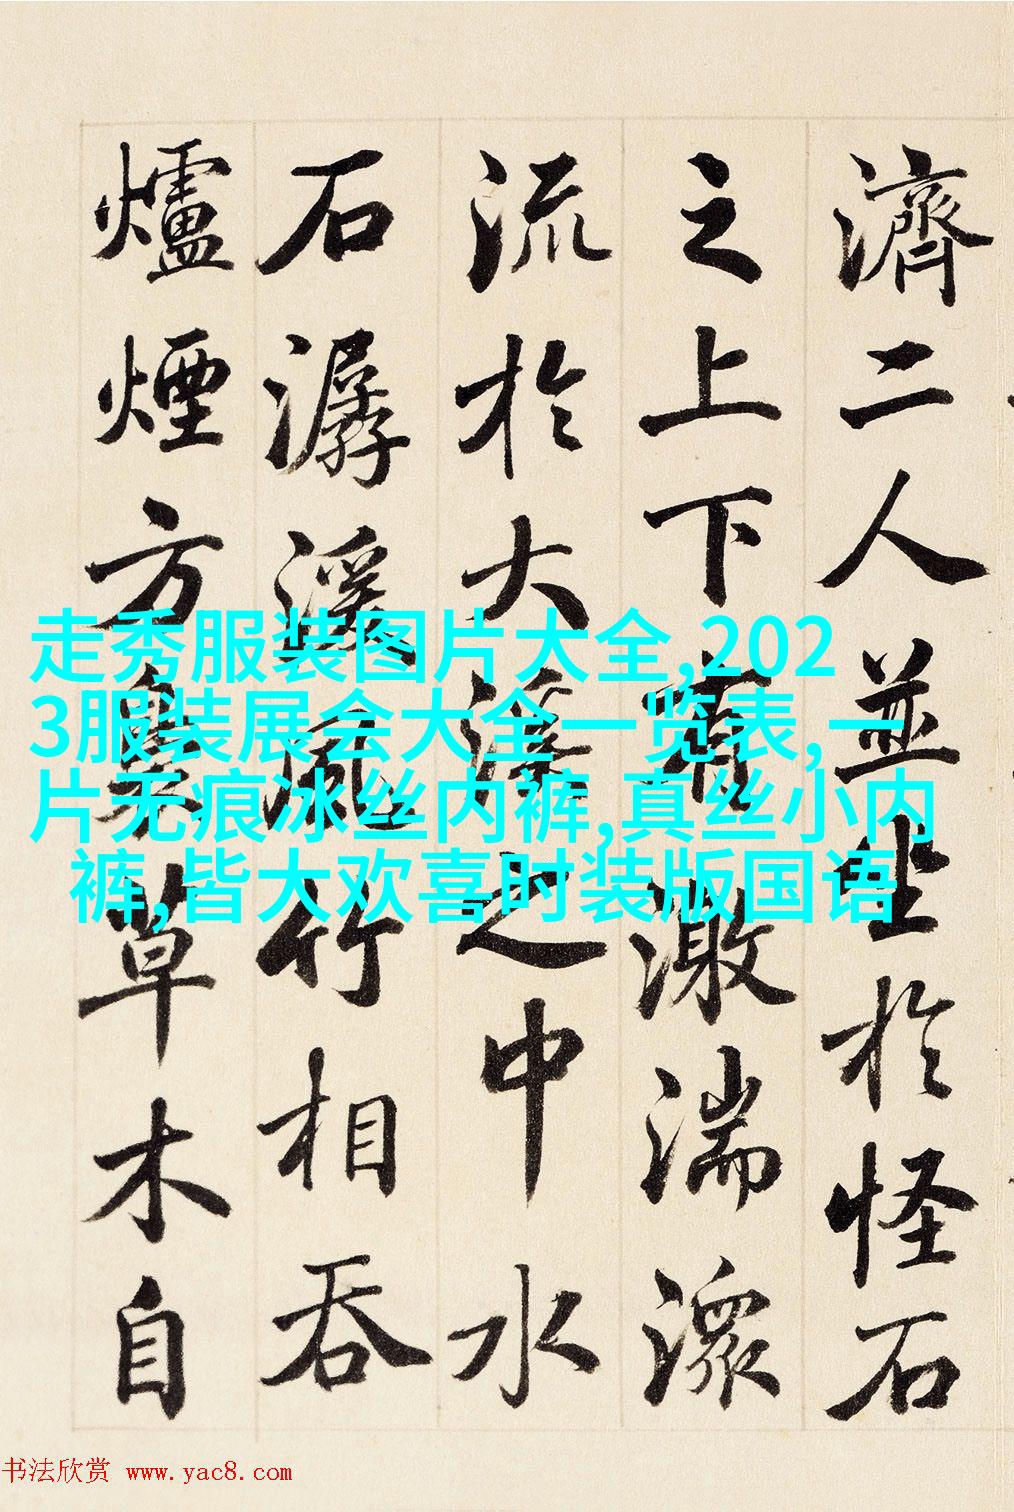 濟二人並坐於怪石
之上下有激湍潀
流於大溪之中水
石潺湲風竹相吞
爐煙方裊草木自
走秀服装图片大全,202
3服装展会大全一览表,一
片无痕冰丝内裤,真丝小内
裤,皆大欢喜时装版国语
书法欣赏 www.yac8.com